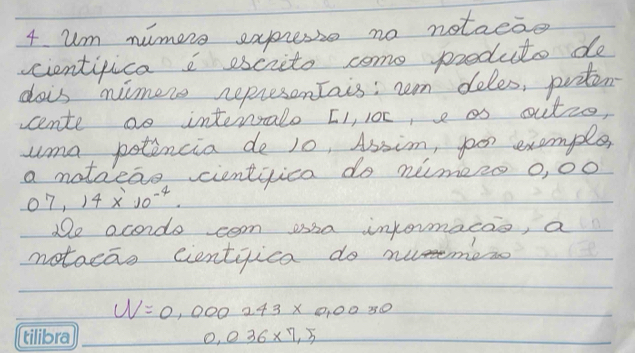 4. Um número expresso na notacão
científica é escrito como produto de
dois número representais: um deles, perten-
cente ao intervalo [1, 10[, e os outro,
uma potência de 10. Assim, por exemplo,
a notacão científica do número 0,00
07, 14 x 10⁻⁴.
De acordo com essa informacão, a
notacão científica do número
N = 0,000 243 x 0,0050
0,036 x 7,5
tilibra